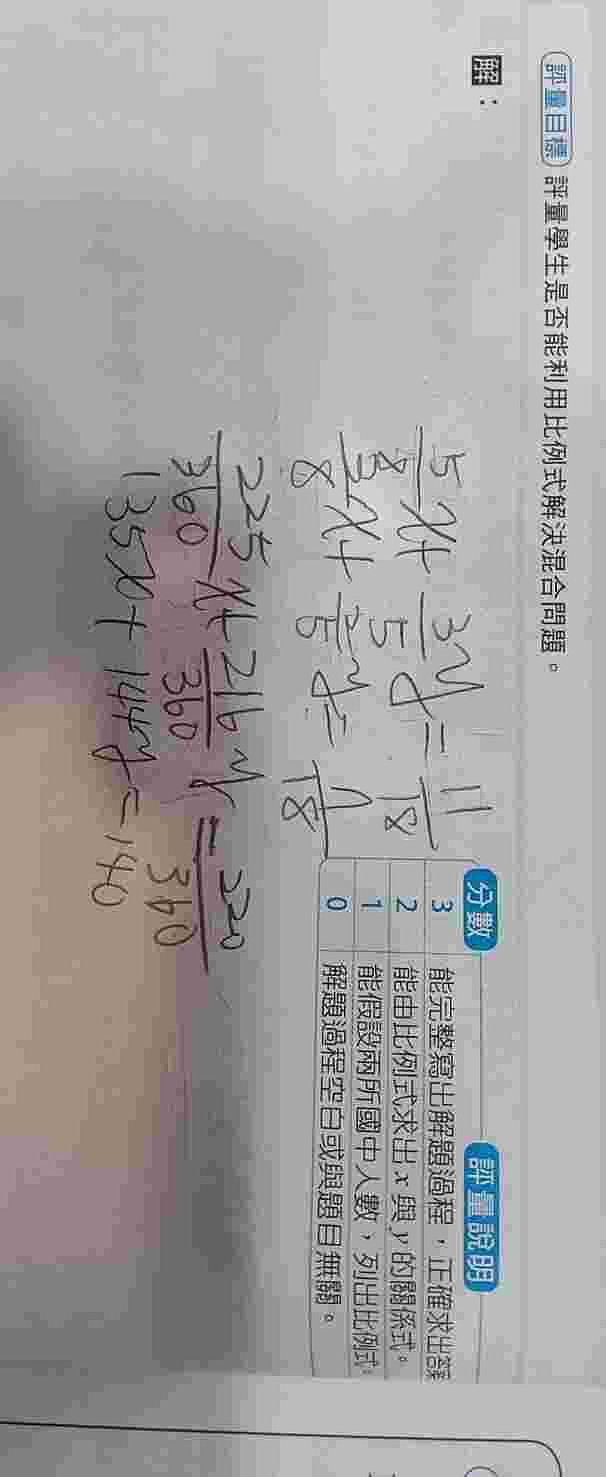 評量目標 評量學生是否能利用比例式解決混合問題。
解：
分數 評量說明
3 能完整寫出解題過程，正確求出答
2 能由比例式求出 x 與 y 的關係式。
1 能假設兩所國中人數，列出比例式
0 解題過程空白或與題目無關。
5/8 x + 3/5 y = 11/18
3/8 x + 2/5 y = 7/18
225/360 x + 216/360 y = 220/360
135x + 144y = 140